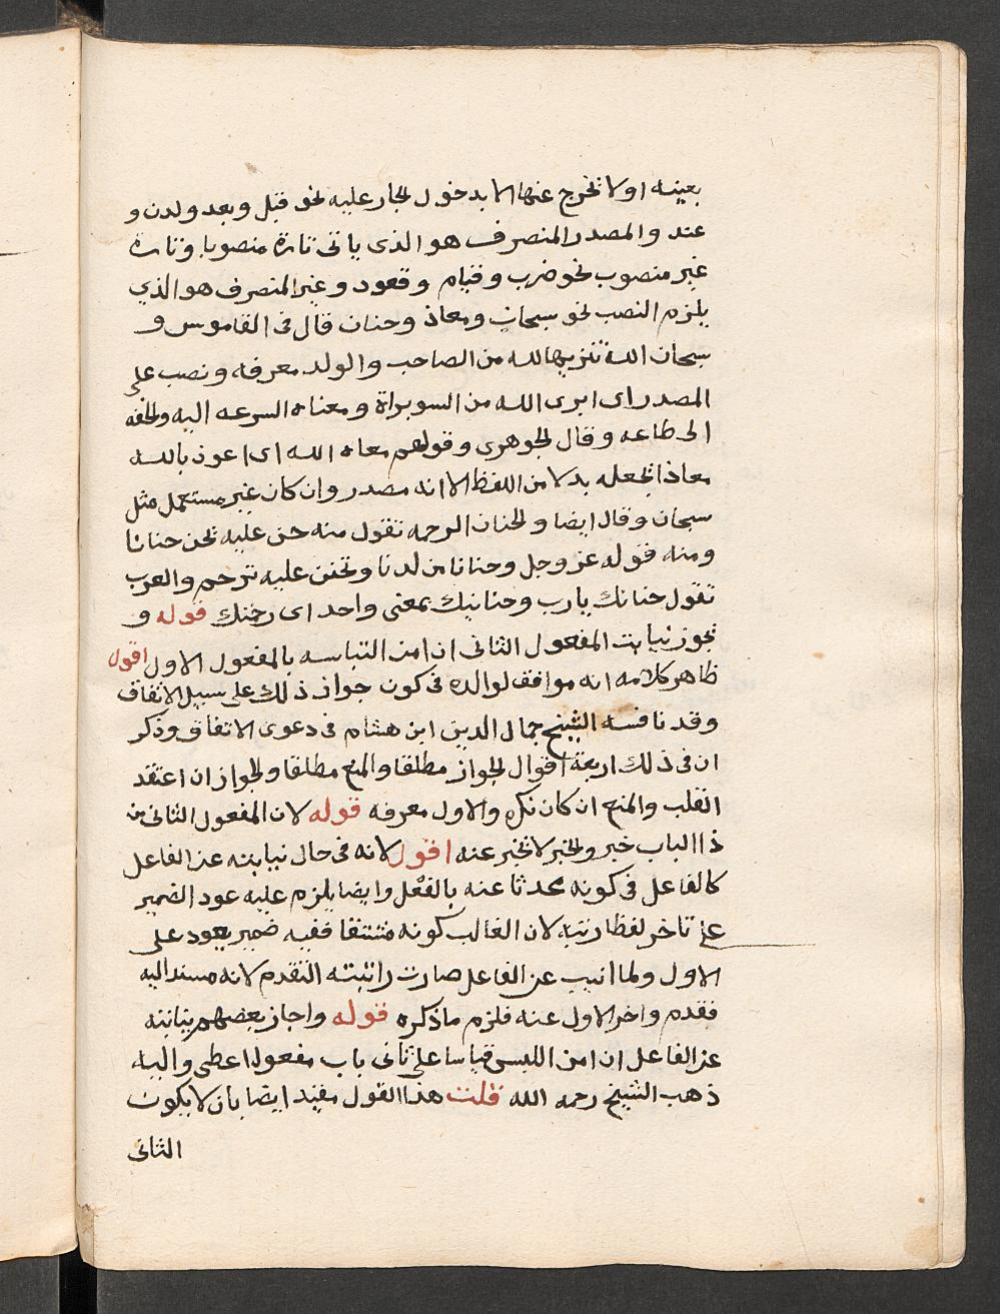 بعينه او لا تخرج عنها الا بدخول الجار عليه نحو قبل وبعد ولدن و
عند والمصدر المنصرف هو الذى ياتى تارة منصوبا وتارة
غير منصوب نحو ضرب وقيام وقعود وغير المنصرف هو الذي
يلزم النصب نحو سبحان ومعاذ وحنان قال فى القاموس و
سبحان الله تنزيها لله من الصاحب والولد معرفه ونصب على
المصدر اى ابرى الله من السو براة ومعناه السرعه اليه والخفه
الى طاعه وقال الجوهرى وقولهم معاه الله اى اعوذ بالله
معاذا تجعله بدلا من اللفظ الا انه مصدر وان كان غير مستعمل مثل
سبحان وقال ايضا والحنان الرحمه تقول منه حن عليه تحن حنانا
ومنه قوله عز وجل وحنانا من لدنا وتحنن عليه ترحم والعرب
تقول حنانك يارب وحنانيك بمعنى واحد اى رحمتك قوله و
تجوز نيابت المفعول الثانى ان امن التباسه بالمفعول الاول اقول
ظاهر كلامه انه موافق لوالده فى كون جواز ذلك على سبيل الاتفاق
وقد نافسه الشيخ جمال الدين ابن هشام فى دعوى الاتفاق وذكر
ان فى ذلك اربعة اقوال الجواز مطلقا والمنع مطلقا والجواز ان اعتقد
القلب والمنع ان كان نكره والاول معرفه قوله لان المفعول الثانى من
ذا الباب خبر والخبر لا تخبر عنه اقول لانه فى حال نيابته عن الفاعل
كالفاعل فى كونه محدثا عنه بالفعل وايضا يلزم عليه عود الضمير
على تاخر لفظا رتبه لان الغالب كونه مشتقا ففيه ضمير يعود على
الاول ولما انيب عن الفاعل صارت راتبته التقدم لانه مسند اليه
فقدم واخر الاول عنه فلزم ما ذكره قوله واجاز بعضهم نيابته
عن الفاعل ان امن اللبس قياسا على ثانى باب مفعول اعطى واليه
ذهب الشيخ رحمه الله قلت هذا القول مقيد ايضا بان لا يكون
الثانى